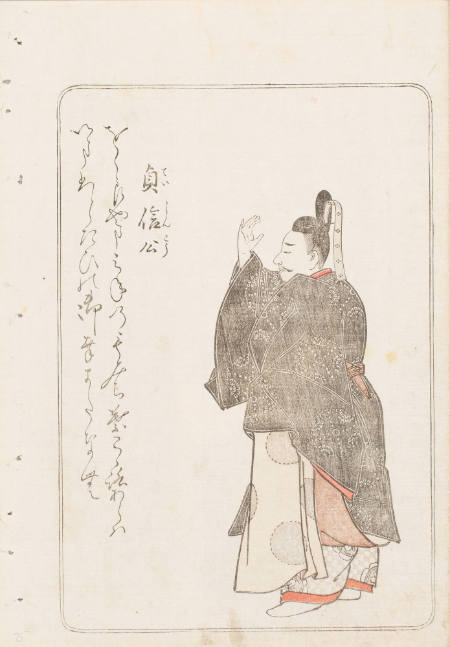 貞信公
ていしんこう
をくら山みねのもみち葉こゝろあらハ
いまひとたひの御幸またなむ